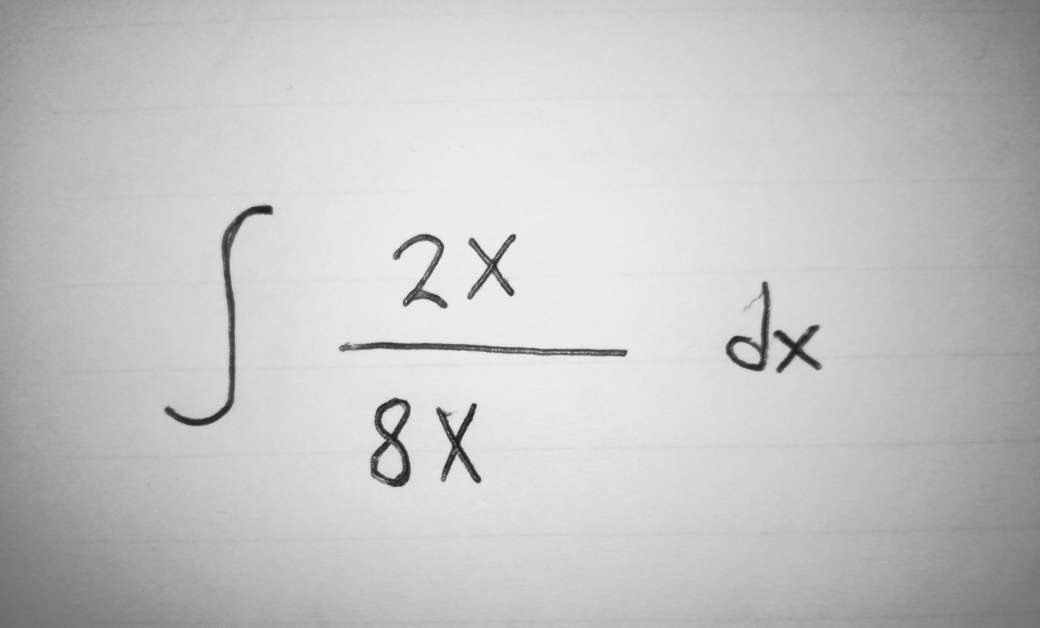 ∫ 2x / 8x dx